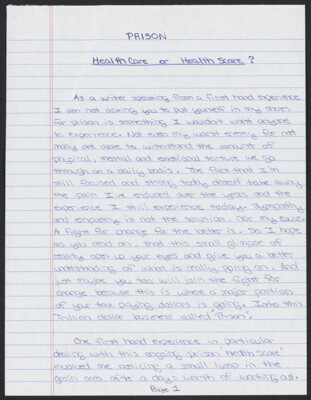 PRISON
Health Care or Health Scare?
As a writer speaking from a first hand experience
I am not asking you to put yourself in my shoes
for prison is something I wouldn't want anyone
to experience. Not even my worst enemy for not
many are able to withstand the amount of
physical, mental and emotional torture we go
through on a daily basis. The fact that I'm
still focused and strong today doesn't take away
the pain I've endured over the years and the
experience I still experience today. Sympathy
and empathy is not the solution, nor my cause.
A fight for change for the better is. So I hope
as you read on, that this small glimpse of
reality open up your eyes and give you a better
understanding of what is really going on. And
just maybe you too will join the fight for
change because this is where a major portion
of your tax paying dollars is going. Into this
Trillion dollar business called "Prison".
One first hand experience in particular
dealing with this ongoing prison "Health Scare"
involved me noticing a small lump in the
groin area after a days worth of working out.
Page 1